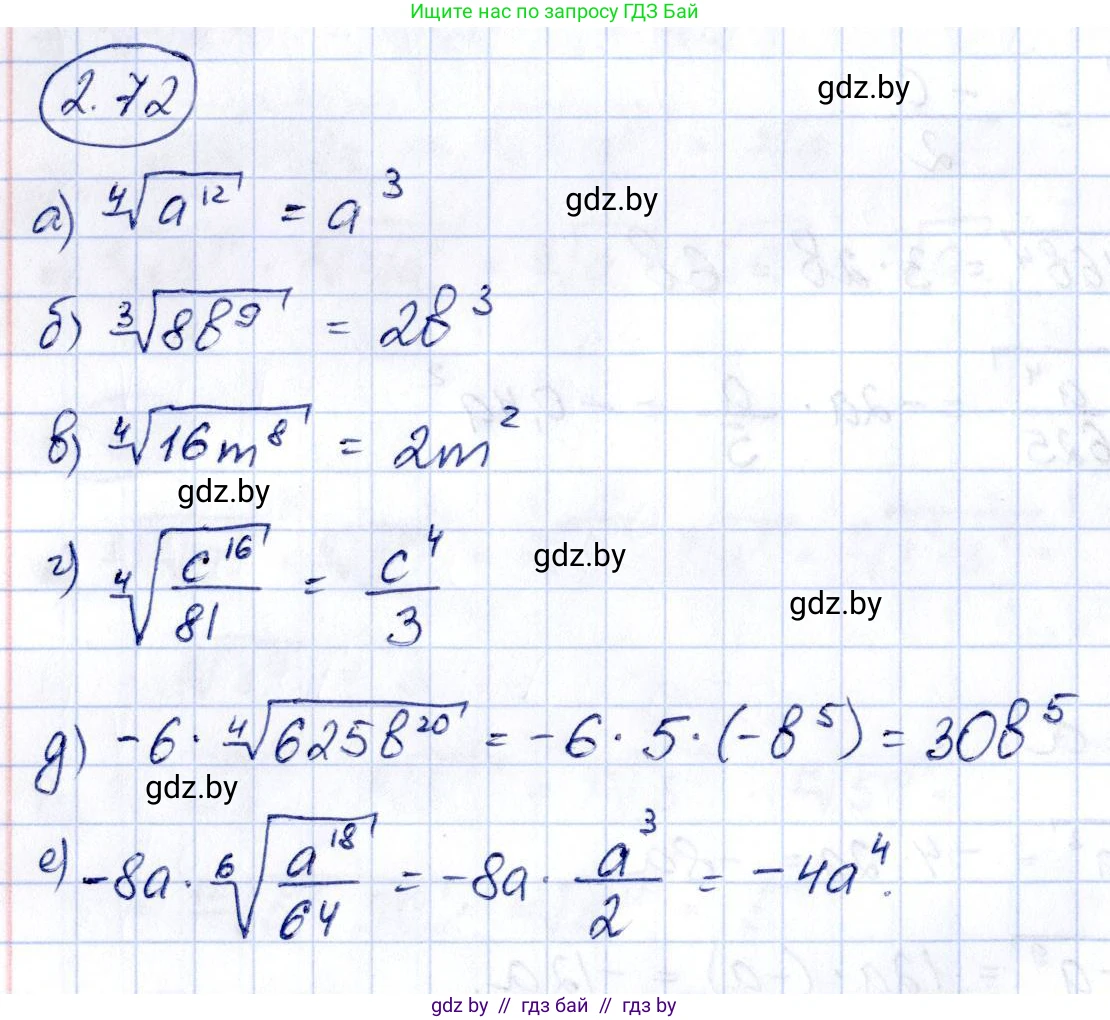 Ищите нас по запросу ГДЗ Бай
2.72
gdz.by
а) ∜(a¹²) = a³
gdz.by
б) ∛(8b⁹) = 2b³
в) ∜(16m⁸) = 2m²
gdz.by
г) ∜(c¹⁶/81) = c⁴/3
gdz.by
gdz.by
д) -6 · ∜(625b²⁰) = -6 · 5 · (-b⁵) = 30b⁵
gdz.by
е) -8a · ⁶√(a¹⁸/64) = -8a · a³/2 = -4a⁴.
gdz.by // гдз бай // гдз by